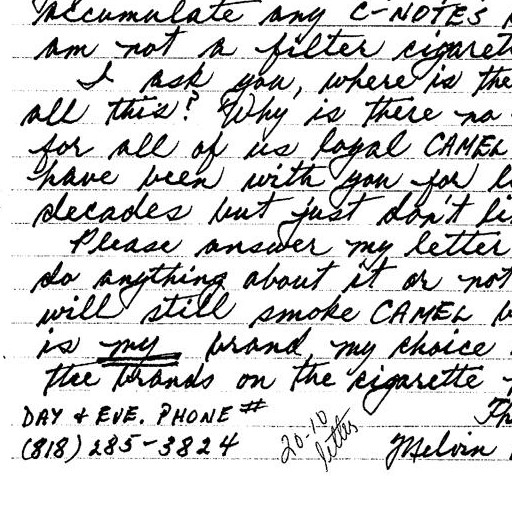 accumulate any C-NOTES
am not a filter cigaret
I ask you, where is the
all this? Why is there no
for all of us loyal CAMEL
have been with you for l
decades but just don't li
Please answer my letter
do anything about it or not
will still smoke CAMEL b
is my brand, my choice
the brands on the cigarette
DAY & EVE. PHONE #
(818) 285-3824
20-10
letter
Melvin